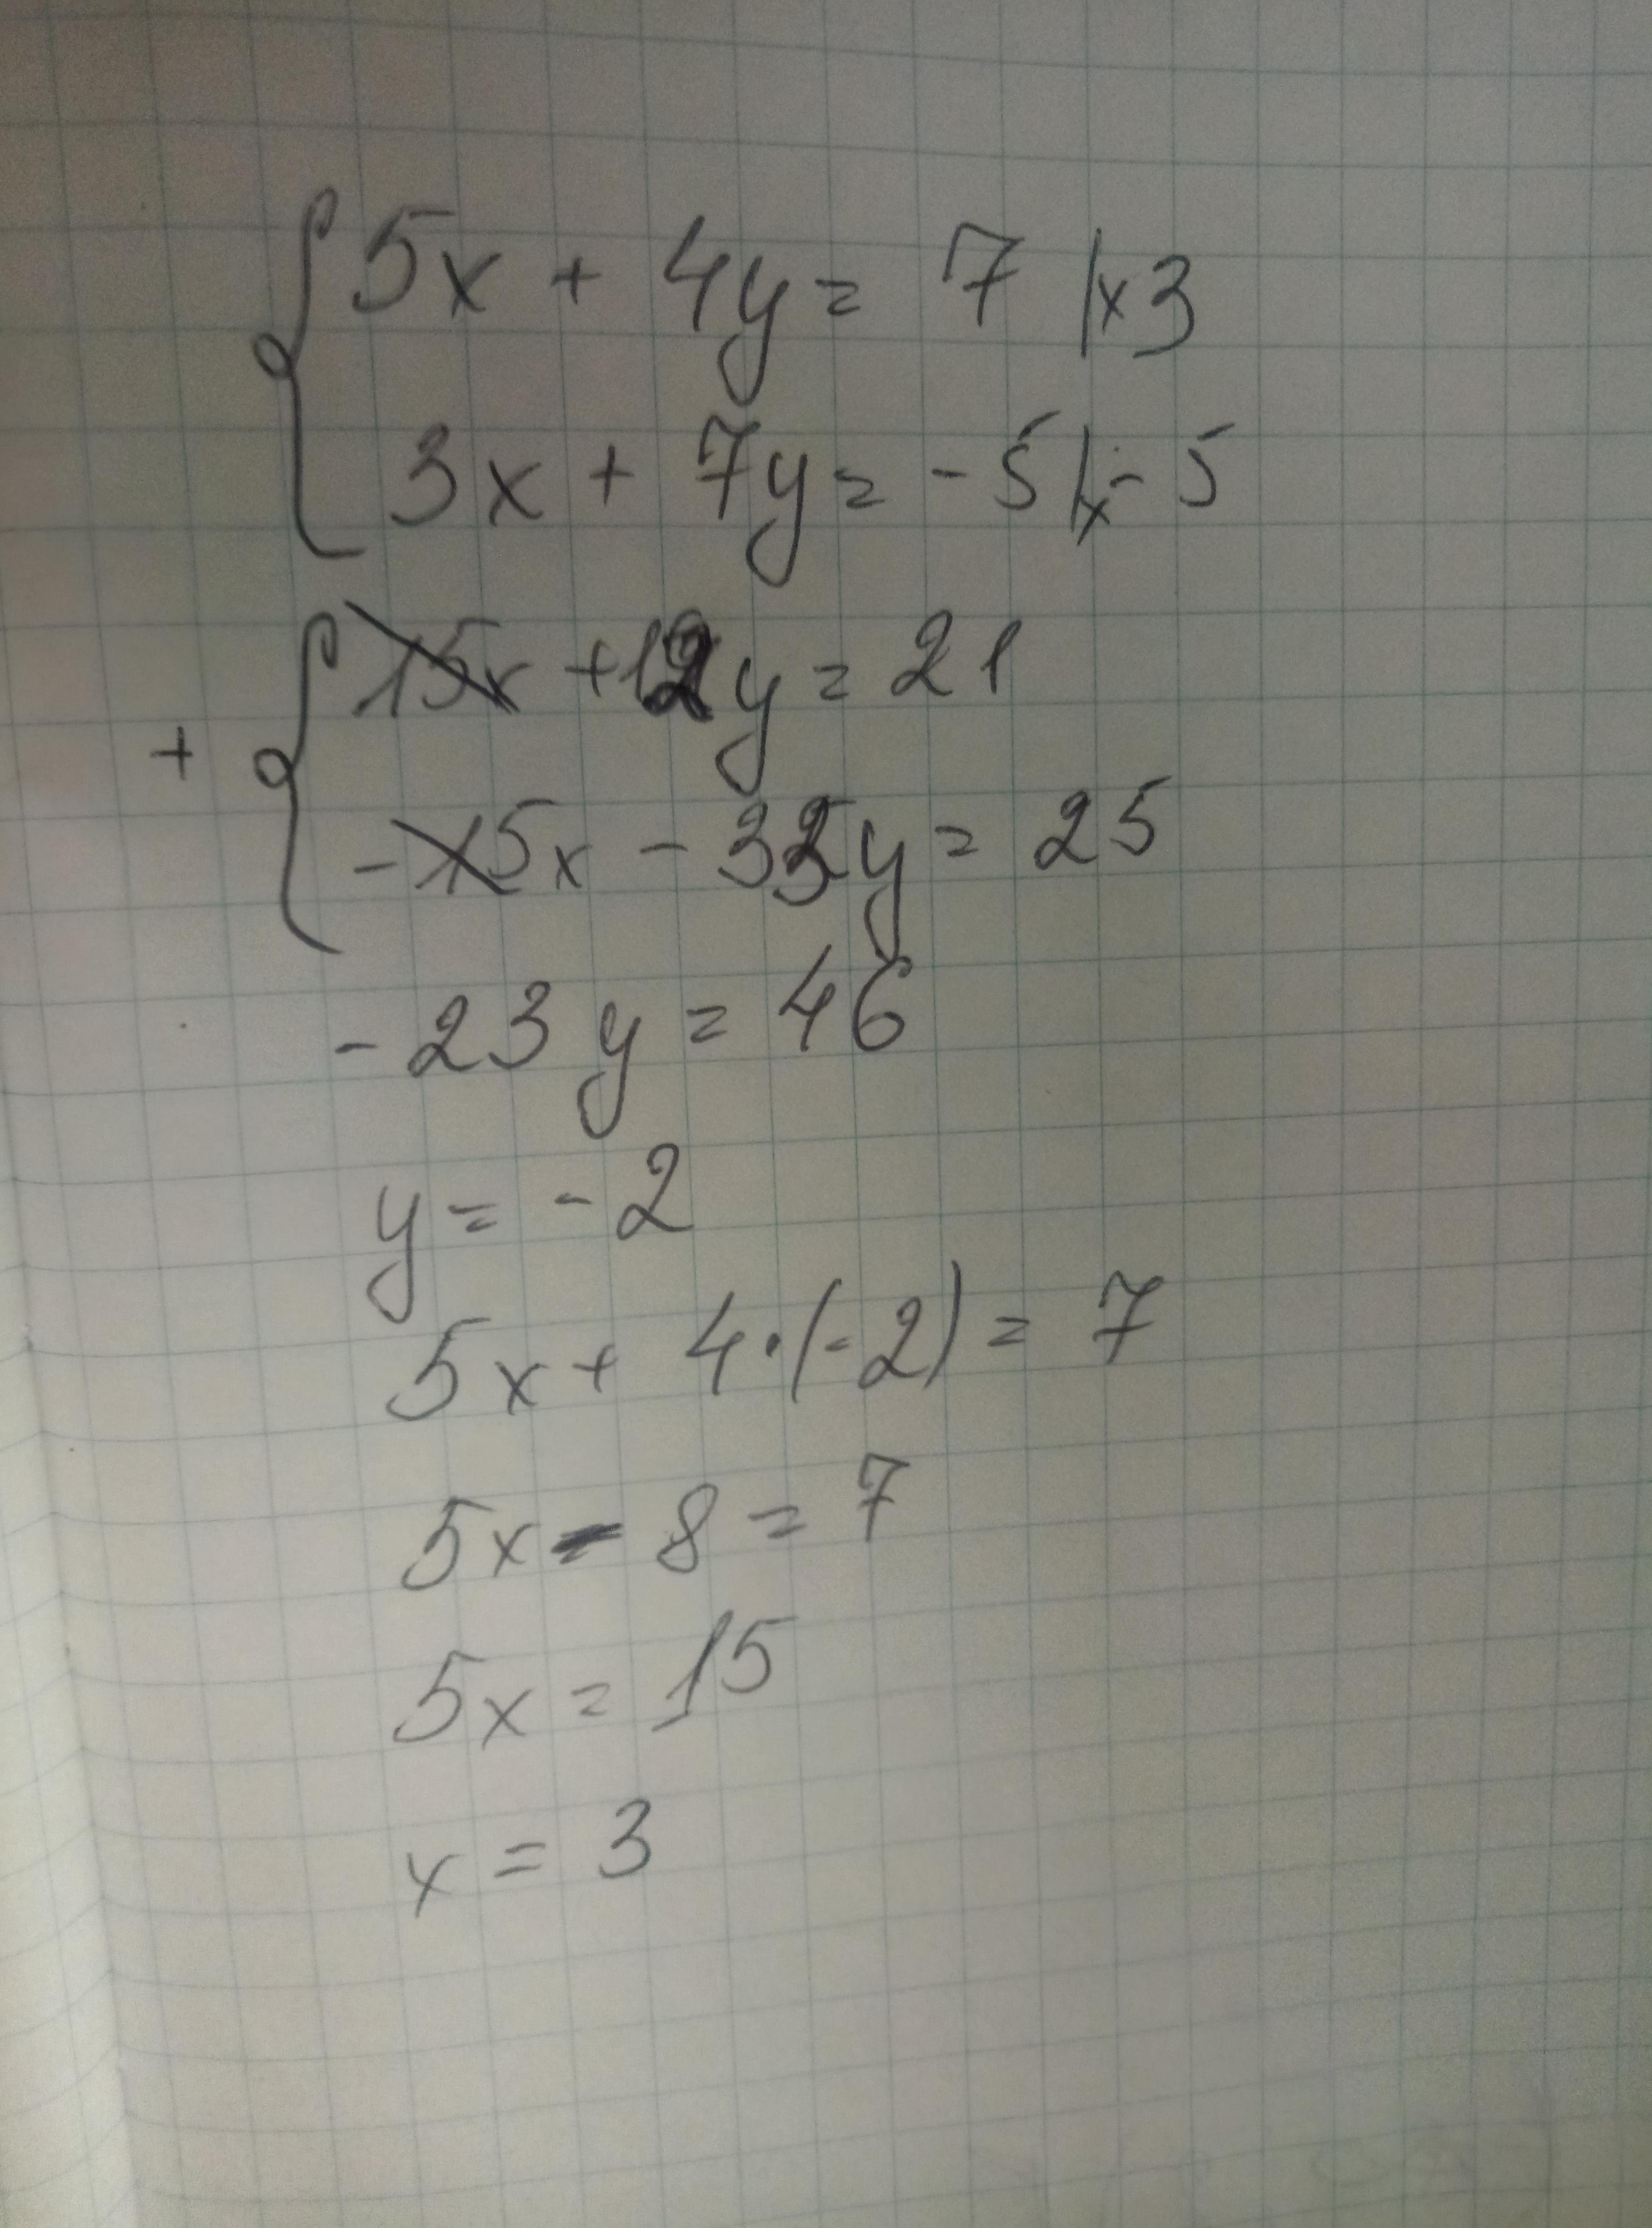 5x + 4y = 7 |x3
3x + 7y = -5 |x-5
15x + 12y = 21
+
-15x - 35y = 25
-23y = 46
y = -2
5x + 4·(-2) = 7
5x - 8 = 7
5x = 15
x = 3